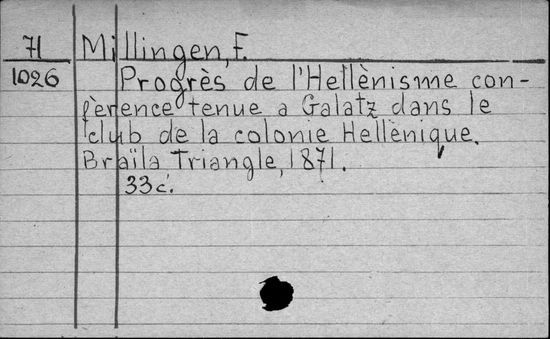 71 Millingen, F.
1026 Progrès de l'Hellènisme con-
fèrence tenue a Galatz dans le
club de la colonie Hellènique.
Braïla Triangle, 1871.
33 c.